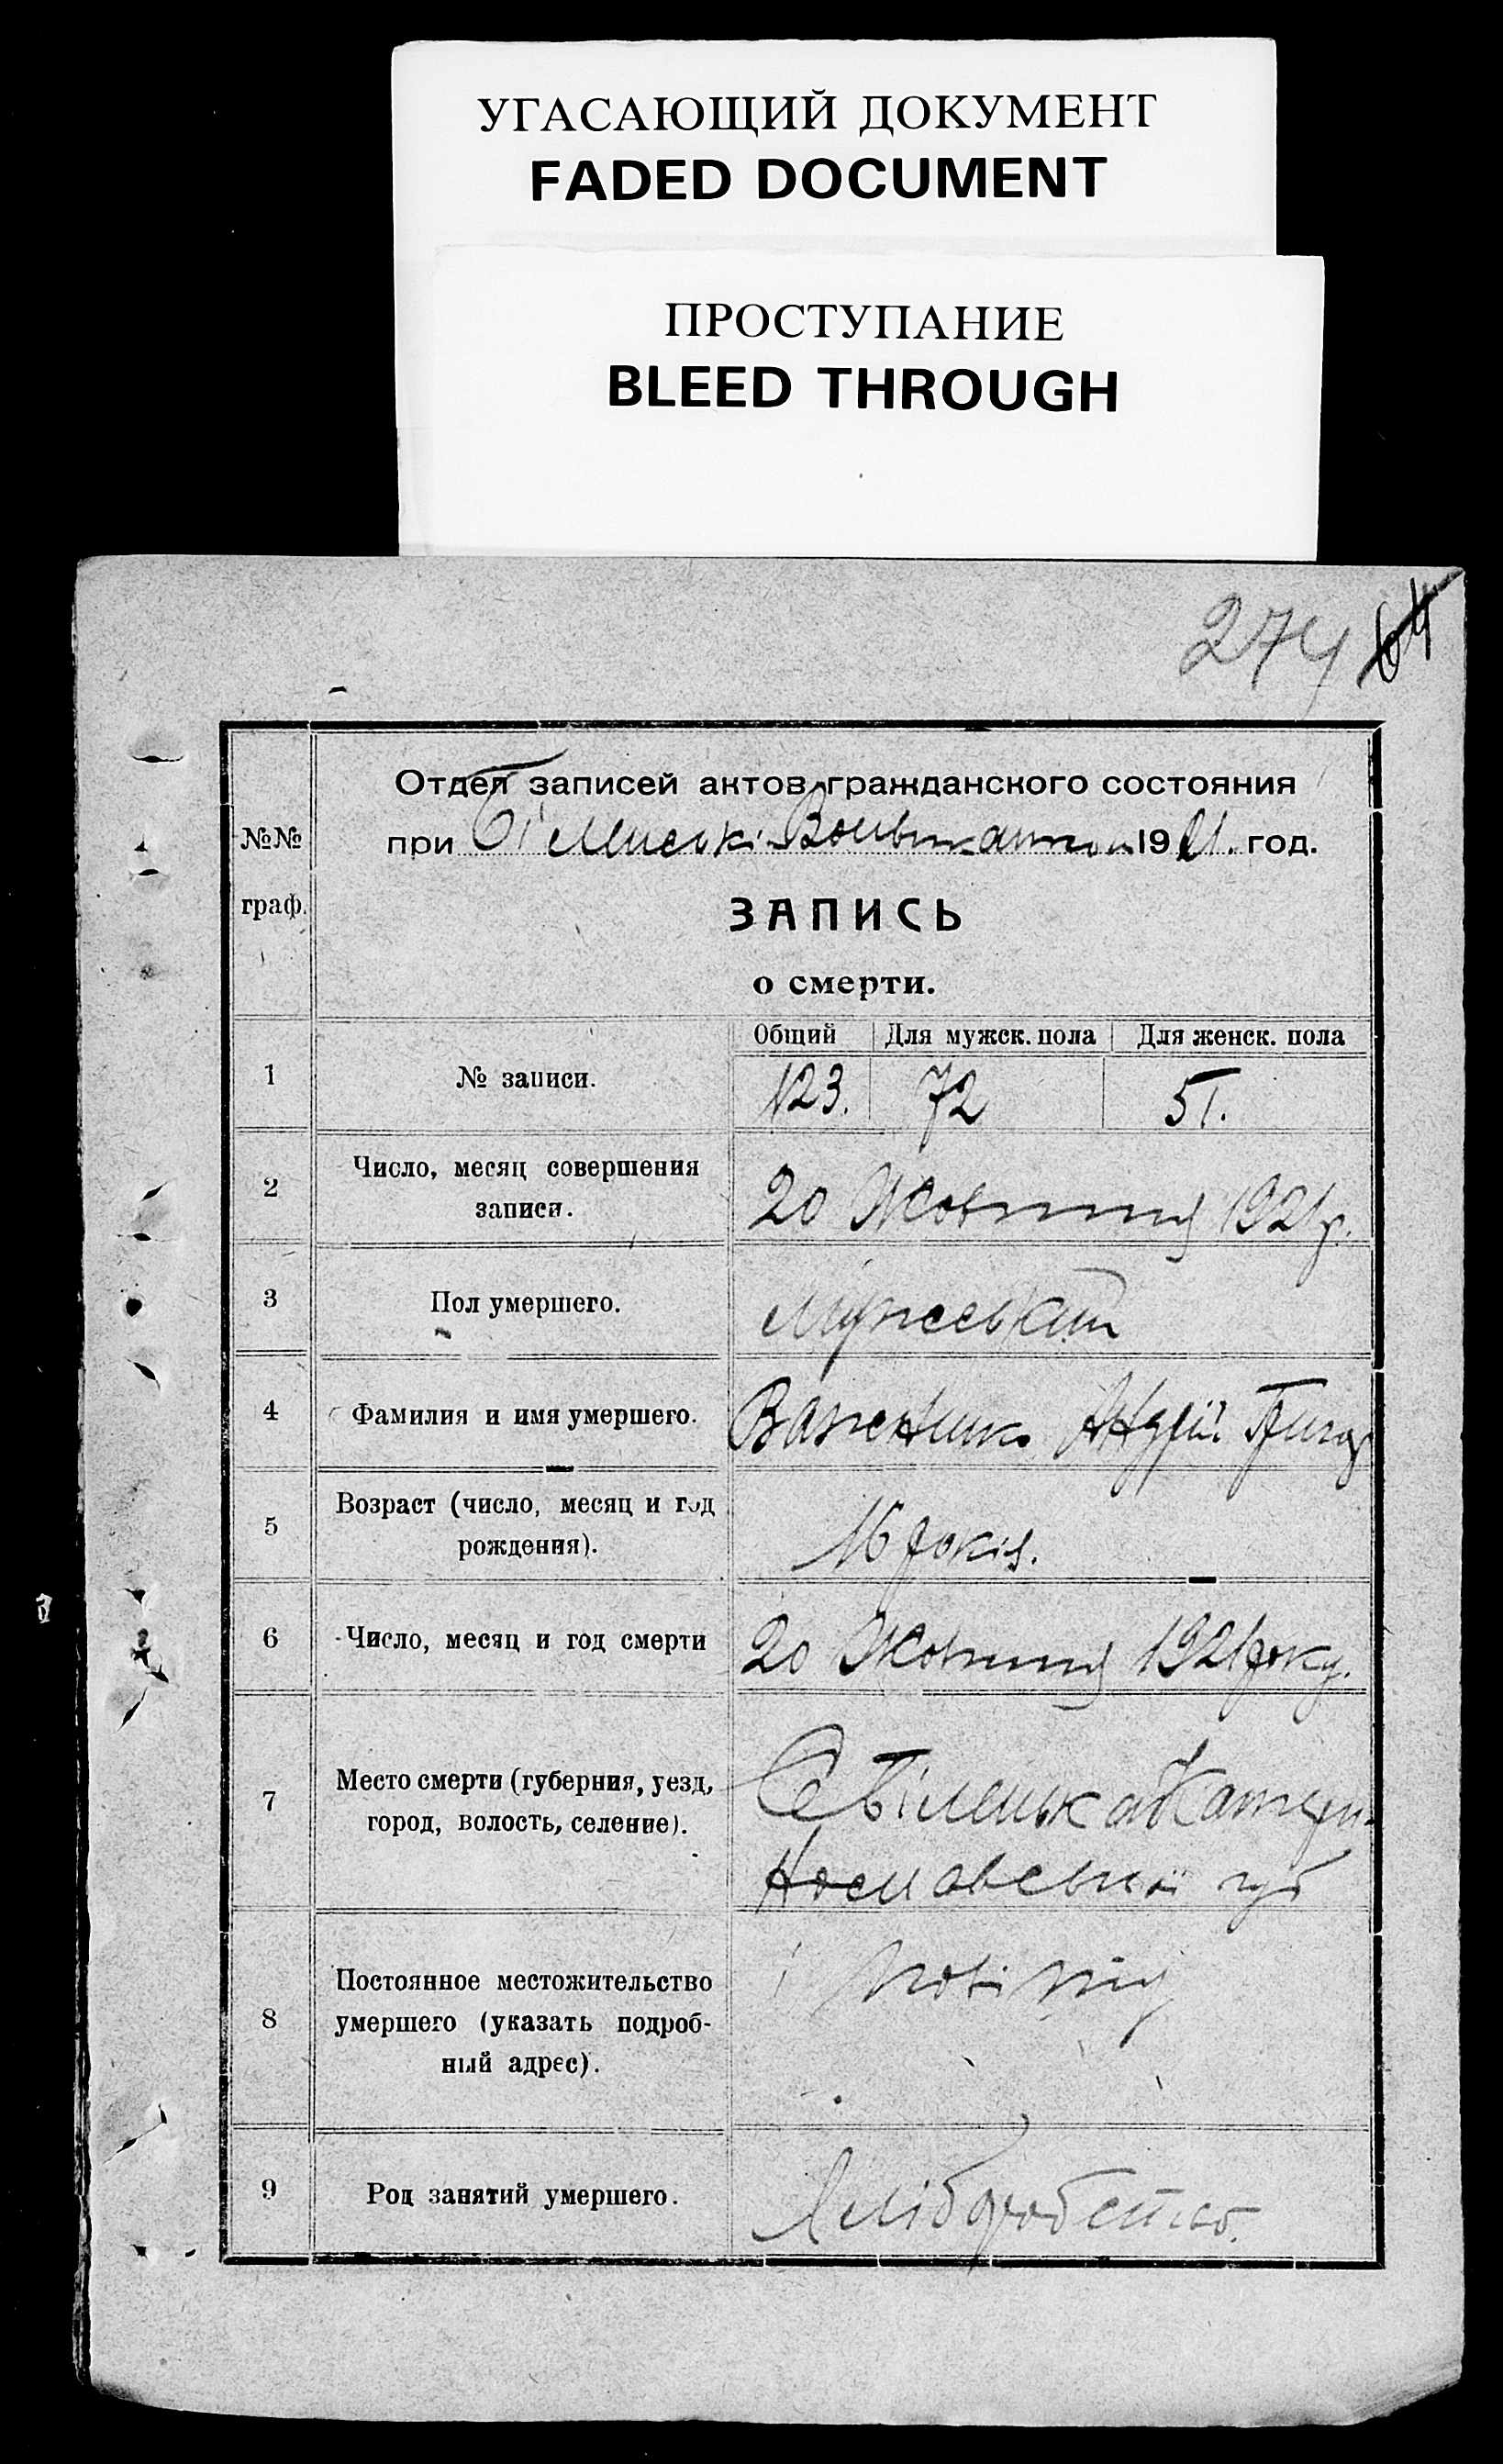 УГАСАЮЩИЙ ДОКУМЕНТ
FADED DOCUMENT
ПРОСТУПАНИЕ
BLEED THROUGH
274 64
Отдел записей актов гражданского состояния
при 1921. год.
№№
граф.
ЗАПИСЬ
о смерти.
Общий Для мужск. пола Для женск. пола
1 № записи. 123. 72 51.
2 Число, месяц совершения
записи. 20 Жовтня 1921р.
3 Пол умершего. Мужеський
4 Фамилия и имя умершего. Важенико Андрій Григор
5 Возраст (число, месяц и год
рождения). 16 років.
6 Число, месяц и год смерти 20 Жовтня 1921року.
7 Место смерти (губерния, уезд,
город, волость, селение). С Біленька Катери-
нославської губ
8 Постоянное местожительство
умершего (указать подроб-
ный адрес).
9 Род занятий умершего. Хлібробство.